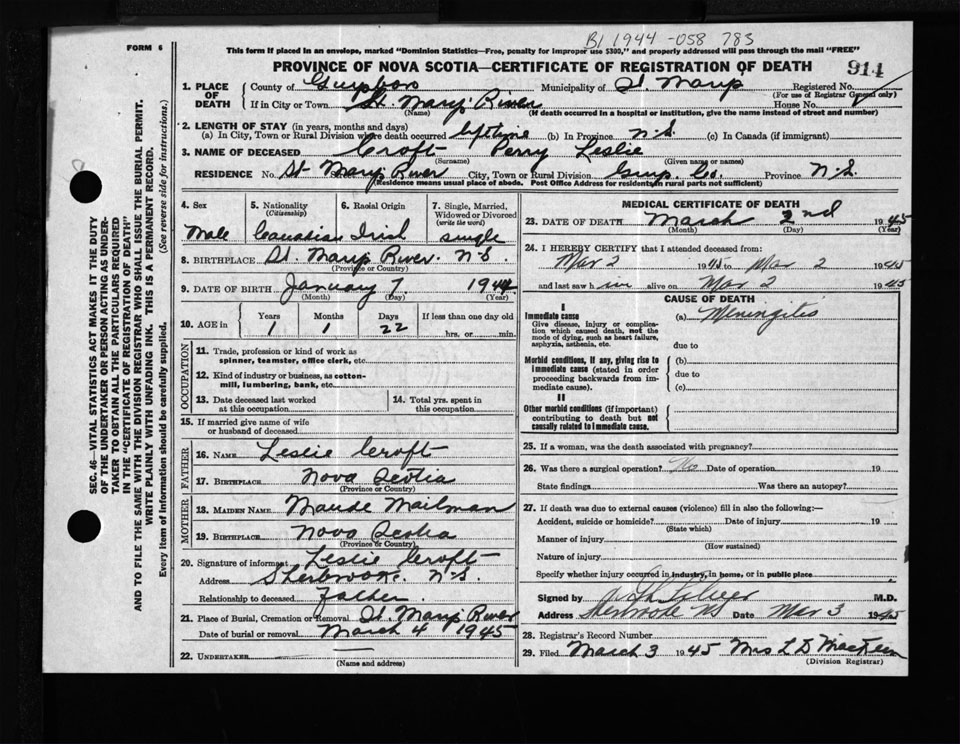 B1 1944-058 783
FORM 6
This form if placed in an envelope, marked "Dominion Statistics—Free, penalty for improper use $300," and properly addressed will pass through the mail "FREE"
PROVINCE OF NOVA SCOTIA—CERTIFICATE OF REGISTRATION OF DEATH
914
1. PLACE OF DEATH
County of Guysboro Municipality of St. Marys Registered No.
(For use of Registrar General only)
If in City or Town St. Marys River House No.
(Name) (If death occurred in a hospital or institution, give the name instead of street and number)
2. LENGTH OF STAY (in years, months and days)
(a) In City, Town or Rural Division where death occurred lifetime (b) In Province N.S. (c) In Canada (if immigrant)
3. NAME OF DECEASED Croft Perry Leslie
(Surname) (Given name or names)
RESIDENCE No. St. Marys River Street City, Town or Rural Division Guys. Co. Province N.S.
(Residence means usual place of abode. Post Office Address for residents in rural parts not sufficient)
4. Sex
Male
5. Nationality
(Citizenship)
Canadian
6. Racial Origin
Irish
7. Single, Married, Widowed or Divorced
(write the word)
single
8. BIRTHPLACE St. Marys River. N.S.
(Province or Country)
9. DATE OF BIRTH January 7. 1944
(Month) (Day) (Year)
10. AGE in
Years Months Days If less than one day old
1 1 22 hrs. or min.
OCCUPATION
11. Trade, profession or kind of work as spinner, teamster, office clerk, etc.
12. Kind of industry or business, as cotton-mill, lumbering, bank, etc.
13. Date deceased last worked at this occupation
14. Total yrs. spent in this occupation
15. If married give name of wife or husband of deceased
FATHER
16. NAME Leslie Croft
17. BIRTHPLACE Nova Scotia
(Province or Country)
MOTHER
18. MAIDEN NAME Maude Mailman
19. BIRTHPLACE Nova Scotia
(Province or Country)
20. Signature of informant Leslie Croft
Address Sherbrooke. N.S.
Relationship to deceased Father
21. Place of Burial, Cremation or Removal St. Marys River
Date of burial or removal March 4 1945
22. UNDERTAKER
(Name and address)
MEDICAL CERTIFICATE OF DEATH
23. DATE OF DEATH March 2nd 1945
(Month) (Day) (Year)
24. I HEREBY CERTIFY that I attended deceased from:
Mar 2 1945 to Mar 2 1945
and last saw h im alive on Mar 2 1945
CAUSE OF DEATH
I
Immediate cause
Give disease, injury or complication which caused death, not the mode of dying, such as heart failure, asphyxia, asthenia, etc.
(a) Meningitis
due to
Morbid conditions, if any, giving rise to immediate cause (stated in order proceeding backwards from immediate cause).
(b)
due to
(c)
II
Other morbid conditions (if important) contributing to death but not causally related to immediate cause.
25. If a woman, was the death associated with pregnancy?
26. Was there a surgical operation? No Date of operation 19
State findings Was there an autopsy?
27. If death was due to external causes (violence) fill in also the following:—
Accident, suicide or homicide? Date of injury 19
(State which)
Manner of injury
(How sustained)
Nature of injury
Specify whether injury occurred in industry, in home, or in public place
Signed by M.D.
Address Sherbrooke NS Date Mar 3 1945
28. Registrar's Record Number
29. Filed March 3 1945 Mrs L D MacKeen
(Division Registrar)
SEC. 46—VITAL STATISTICS ACT MAKES IT THE DUTY
OF THE UNDERTAKER OR PERSON ACTING AS UNDER-
TAKER TO OBTAIN ALL THE PARTICULARS REQUIRED
IN THE "CERTIFICATE OF REGISTRATION OF DEATH"
AND TO FILE THE SAME WITH THE DIVISION REGISTRAR WHO SHALL ISSUE THE BURIAL PERMIT.
WRITE PLAINLY WITH UNFADING INK. THIS IS A PERMANENT RECORD.
Every item of information should be carefully supplied. (See reverse side for instructions.)